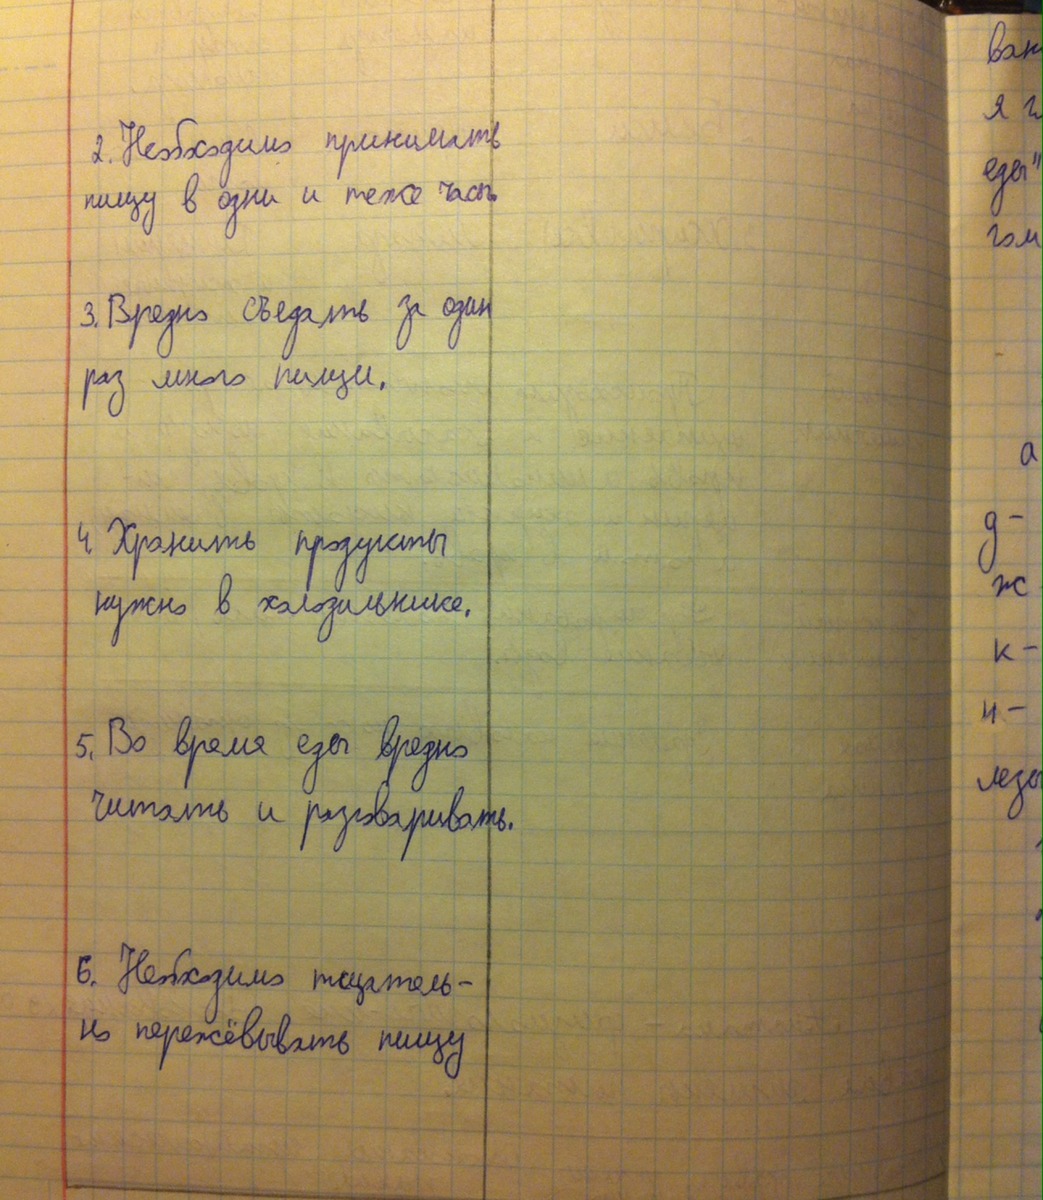 2. Необходимо принимать
пищу в одни и теже часы
3. Вредно съедать за один
раз много пищи.
4. Хранить продукты
нужно в холодильнике.
5. Во время еды вредно
читать и разговаривать.
6. Необходимо тщатель-
но пережёвывать пищу
я
еды"
а
д-
ж
к-
н-